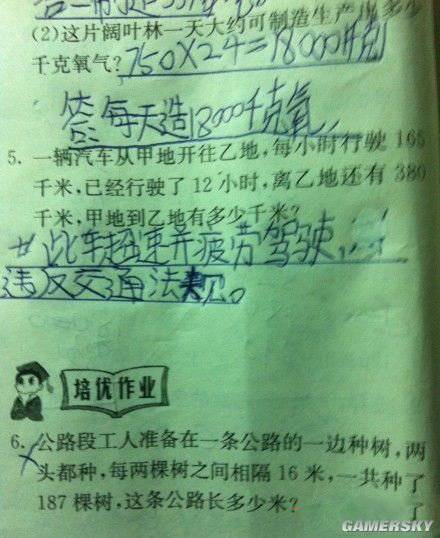 (2)这片阔叶林一天大约可制造生产出多少
千克氧气? 750×24=18000千克
答每天造18000千克氧
5. 一辆汽车从甲地开往乙地,每小时行驶165
千米,已经行驶了12小时,离乙地还有380
千米,甲地到乙地有多少千米?
此车超速并疲劳驾驶,
违反交通法规。
培优作业
6. 公路段工人准备在一条公路的一边种树,两
头都种,每两棵树之间相隔16米,一共种了
187棵树,这条公路长多少米?
GAMERSKY